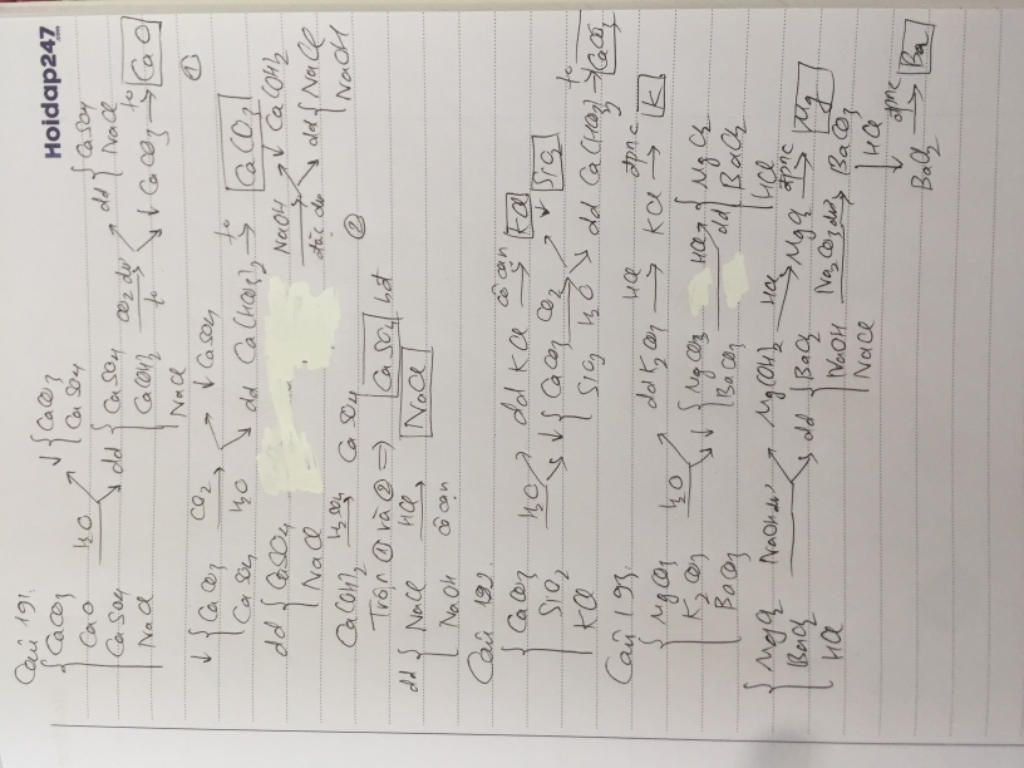 Holdap247
.com
Câu 191.
{ CaCO3
CaO
CaSO4
NaCl
H2O
↓ { CaCO3
CaSO4
dd { CaSO4
Ca(OH)2
NaCl
CO2 dư
to
dd { CaSO4
NaCl
↓ CaCO3 to → CaO
①
↓ { CaCO3
CaSO4
CO2
H2O
↓ CaSO4
dd Ca(HCO3)2 to → CaCO3
dd { CaSO4
NaCl
NaOH
đặc dư
↓ Ca(OH)2
dd { NaCl
NaOH
Ca(OH)2 H2SO4 → CaSO4 ②
Trộn ① và ② => CaSO4 bđ
dd { NaCl
NaOH
HCl →
cô cạn
NaCl
Câu 192
{ CaCO3
SiO2
KCl
H2O
dd KCl cô cạn → KCl
↓ { CaCO3
SiO2
CO2
H2O
↓ SiO2
dd Ca(HCO3)2 to → CaCO3
Câu 193.
{ MgCO3
K2CO3
BaCO3
H2O
dd K2CO3 HCl → KCl đpnc → K
↓ { MgCO3
BaCO3
HCl
dd { MgCl2
BaCl2
HCl
{ MgCl2
BaCl2
HCl
NaOH dư
Mg(OH)2 HCl → MgCl2 đpnc → Mg
dd { BaCl2
NaOH
NaCl
Na2CO3 dư → BaCO3
↓ HCl
BaCl2 đpnc → Ba